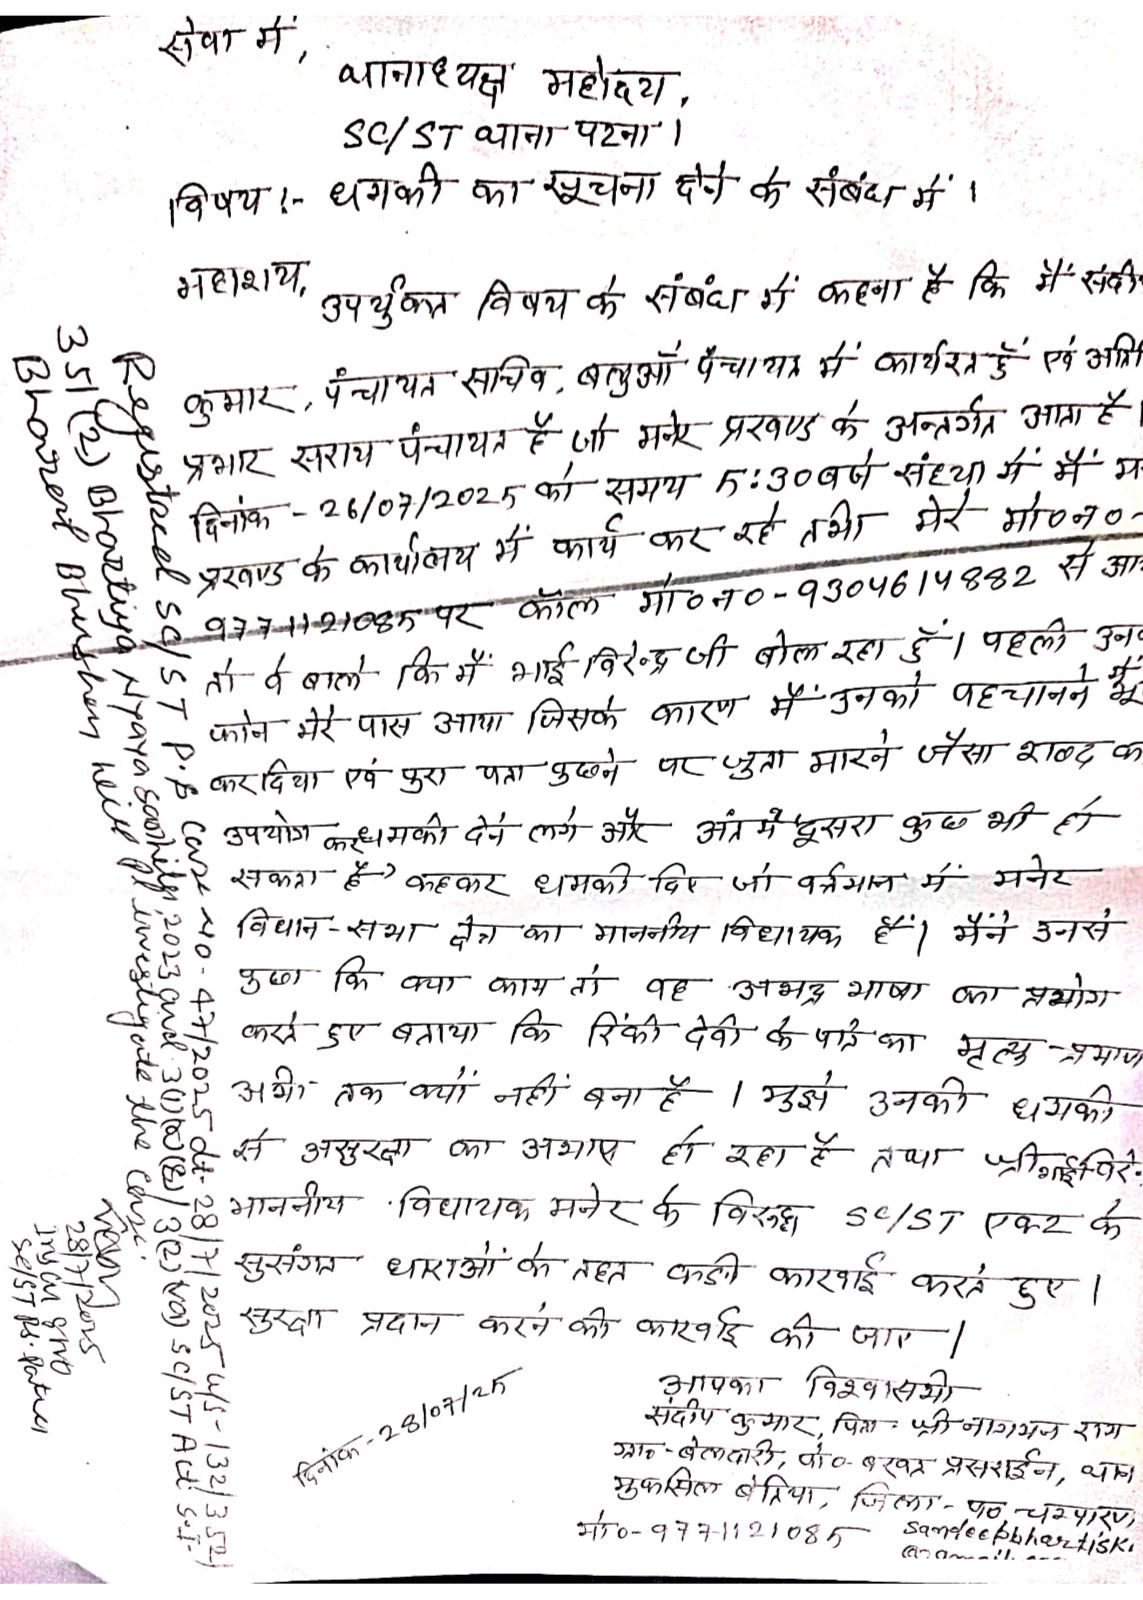 सेवा में,
थानाध्यक्ष महोदय,
SC/ST थाना पटना।
विषय :- धमकी का सूचना देने के संबंध में।
महाशय,
उपर्युक्त विषय के संबंध में कहना है कि मैं संदी
कुमार, पंचायत सचिव, बलुआँ पंचायत में कार्यरत हुँ एवं अति
प्रभार सराय पंचायत है जो मनेर प्रखण्ड के अन्तर्गत आता है।
दिनांक - 26/07/2025 को समय 5:30 बजे संध्या में मैं म
प्रखण्ड के कार्यालय में कार्य कर रहे तभी मेरे मो०न०-
9771121085 पर कॉल मो०न०-9304614882 से आ
तो वे बोले कि मैं भाई विरेन्द्र जी बोल रहा हुँ। पहली उन
फोन मेरे पास आया जिसके कारण मैं उनको पहचानने में भू
कर दिया एवं पुरा पता पुछने पर जुता मारने जैसा शब्द क
उपयोग कर धमकी देने लगे और अंत में "दूसरा कुछ भी हो
सकता है" कहकर धमकी दिए जो वर्त्तमान में मनेर
विधान-सभा क्षेत्र का माननीय विधायक हैं। मैंने उनसे
पुछा कि क्या काम तो वह अभद्र भाषा का प्रयोग
करते हुए बताया कि रिंकी देवी के पति का मृत्यु-प्रमाण
अभी तक क्यों नहीं बना है। मुझे उनकी धमकी
से असुरक्षा का अभाष हो रहा है तथा श्री भाई विरे
माननीय विधायक मनेर के विरूद्ध SC/ST एक्ट के
सुसंगत धाराओं के तहत कड़ी कारवाई करते हुए।
सुरक्षा प्रदान करने की कारवाई की जाए।
दिनांक - 28/07/25
आपका विश्वासभी
संदीप कुमार, पिता - श्री नागमन राम
ग्राम-बेलदारी, पो०- बरवत प्रसराईन, थान
मुफसिल बेतिया, जिला - प० चम्पारण
मो०-9771121085
sandeepbhartisk1
Registered SC/ST P.S Case No.- 47/2025 dt- 28/7/2025 u/s - 132/352/
351(2) Bhartiya Nyaya Sanhita, 2023 and 3(1) 3(2)(va) SC/ST Act. S.I.
Bhareet Bhushan will pl investigate the case.
28/7/2025
SC/ST P.S. Patna